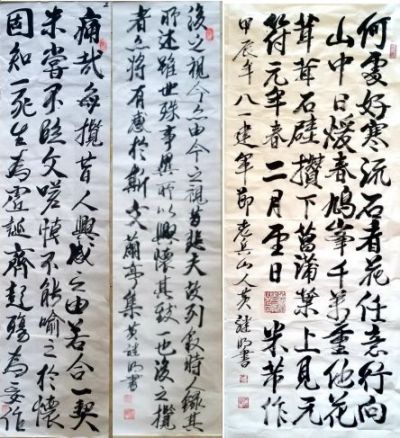 痛哉每攬昔人興感之由若合一契
未嘗不臨文嗟悼不能喻之於懷
固知一死生為虛誕齊彭殤為妄作
後之視今亦由今之視昔悲夫故列敘時人錄其
所述雖世殊事異所以興懷其致一也後之攬
者亦將有感於斯文 蘭亭集 黃明書
何處好寒流石者花任意行向
山中日煖春鳩峯千萬重他花
茸茸石攢下菖蒲葉上見元
符元年春二月日 米芾作
甲辰年八一建軍節老兵山人黃明書